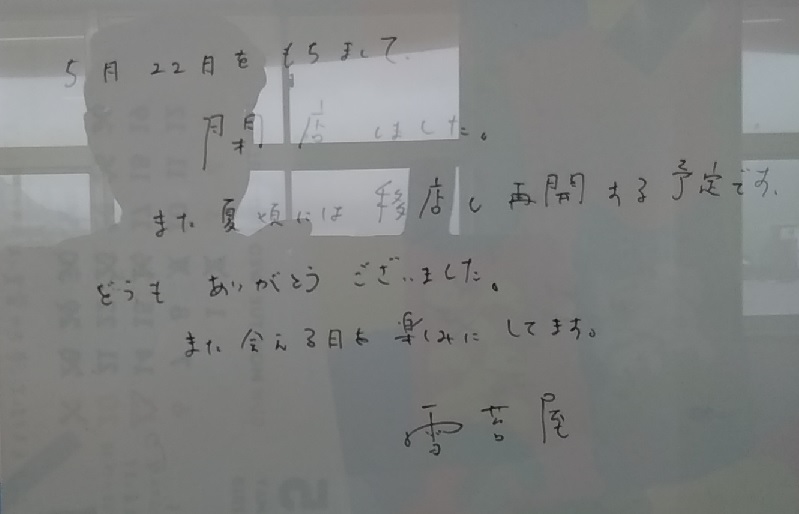 5月22日をもちまして
閉店しました。
また夏頃には移店し再開する予定です。
どうもありがとうございました。
また会える日を楽しみにしてます。
雪苔屋